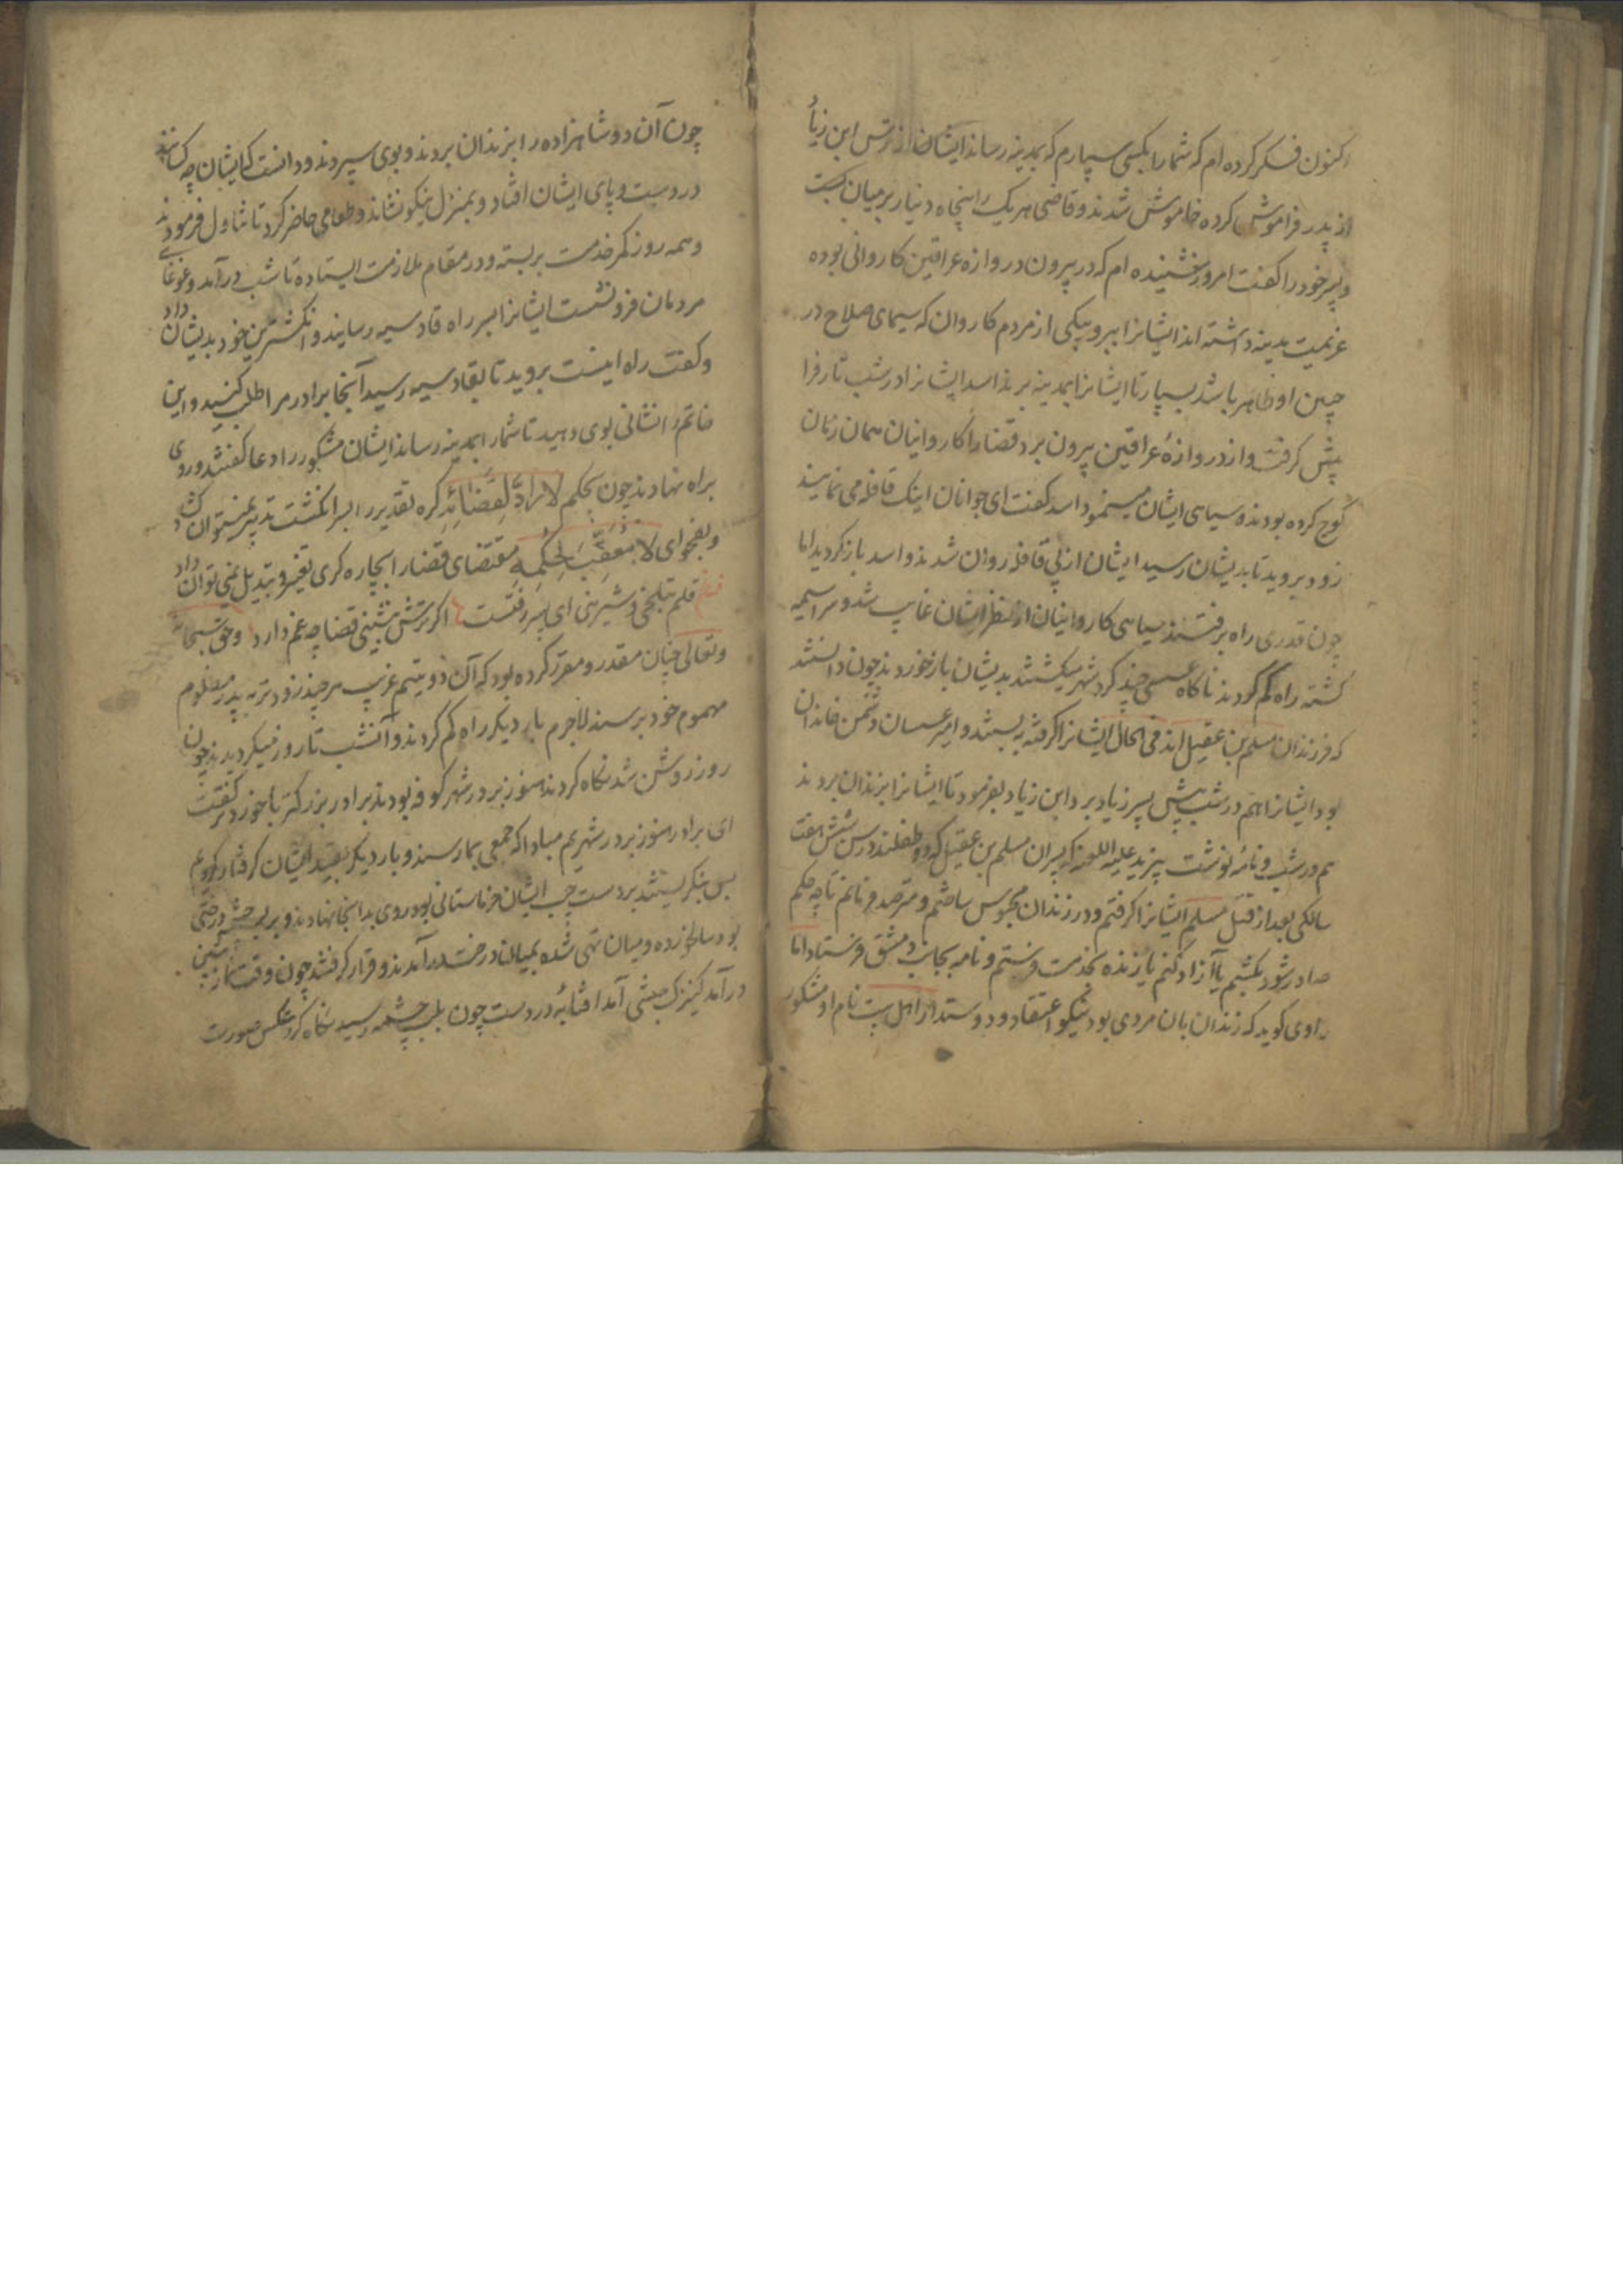 اکنون فکر کرده ام که شما را بکسی سپارم که بمدینه رساند ایشان از ترس ابن زیاد
از پدر فراموش کرده خاموش شدند و قاضی هر یک را پنجاه دینار بر میان بست
و پسر خود را کفت امروز شنیده ام که در بیرون دروازه عراقین کاروانی بوده
عزیمت مدینه داشته اند ایشانرا ببر و بیکی از مردم کاروان که سیمای صلاح در
جبین او ظاهر باشد بسپار تا ایشانرا بمدینه برند اسد ایشانرا در شب تار فرا
پیش کرفت و از دروازهٔ عراقین بیرون برد قضا را کاروانیان همان زمان
کوچ کرده بودند و سیاهی ایشان مینمود اسد کفت ای جوانان اینک قافله می نمایند
زود بروید تا بدیشان رسید ایشان از پی قافله روان شدند و اسد باز کردید اما
چون قدری راه برفتند سیاهی کاروانیان از نظر ایشان غایب شد و سراسیمه
کشته راه کم کردند ناکاه عسسی چند کرد شهر میکشتند بدیشان بازخوردند چون دانستند
که فرزندان مسلم بن عقیل اند فی الحال ایشانرا کرفته بربستند و امیر عسسان دشمن خاندان
بود ایشانرا هم در شب پیش پسر زیاد برد ابن زیاد بفرمود تا ایشانرا بزندان بردند
هم در شب و نامهٔ نوشت بیزید علیه اللعنه که پسران مسلم بن عقیل که دو طفلند در سن شش هفت
سالکی بعد از قتل مسلم ایشانرا کرفتم و در زندان محبوس ساختم و مترصد فرمانم تا چه حکم
صادر شود بکشیم یا آزاد کنم یا زنده بخدمت فرستم و نامه بجانب دمشق فرستاد اما
راوی کوید که زندان بان مردی بود نیکو اعتقاد و دوستدار اهل بیت نام او مشکور
چون آن دو شاهزاده را بزندان بردند و بوی سپردند و دانست که ایشان چه کسانند
در دست و پای ایشان افتاد و بمنزل نیکو نشاند و طعامی حاضر کرد تا تناول فرمودند
و همه روز کمر خدمت بربسته و در مقام ملازمت ایستاده تا شب درآمد و غوغای
مردمان فرو نشست ایشانرا بسر راه قادسیه رسانید و انکشترین خود بدیشان داد
و کفت راه اینست بروید تا بقادسیه رسید آنجا برادر مرا طلب کنید و این
خاتم را نشانی بوی دهید تا شما را بمدینه رساند ایشان مشکور را دعا کفتند و روی
براه نهادند چون بحکم لا رادَّ لِقَضائِه کره تقدیر را بسر انکشت تدبیر نمیتوان کشاد
و بفحوای لا مُعَقِّبَ لِحُکمِهِ مقتضای قضا را بچاره کری تغییر و تبدیل نمی توان داد
قلم بتلخی و شیرینی ای پسر رفتست اکر ترش بنشینی قضا چه غم دارد و حق سبحانه
و تعالی چنان مقدر و مقرر کرده بود که آن دو یتیم غریب هر چند زودتر به پدر مظلوم
مهموم خود برسند لاجرم بار دیکر راه کم کردند و آنشب تا روز میکردیدند چون
روز روشن شد نکاه کردند هنوز بر در شهر کوفه بودند برادر بزرکتر با خوردتر کفت
ای برادر هنوز بر در شهریم مبادا که جمعی بما رسند و بار دیکر بقید ایشان کرفتار کردیم
پس بنکریستند بر دست چپ ایشان خرماستانی بود روی بدانجا نهادند و بر لب چشمه درختی
بود سالخورده و میان تهی شده بمیان درخت درآمدند و قرار کرفتند چون وقت نماز پیشین
درآمد کنیزک حبشی آمد افتابهٔ در دست چون بلب چشمه رسید نکاه کرد عکس صورت